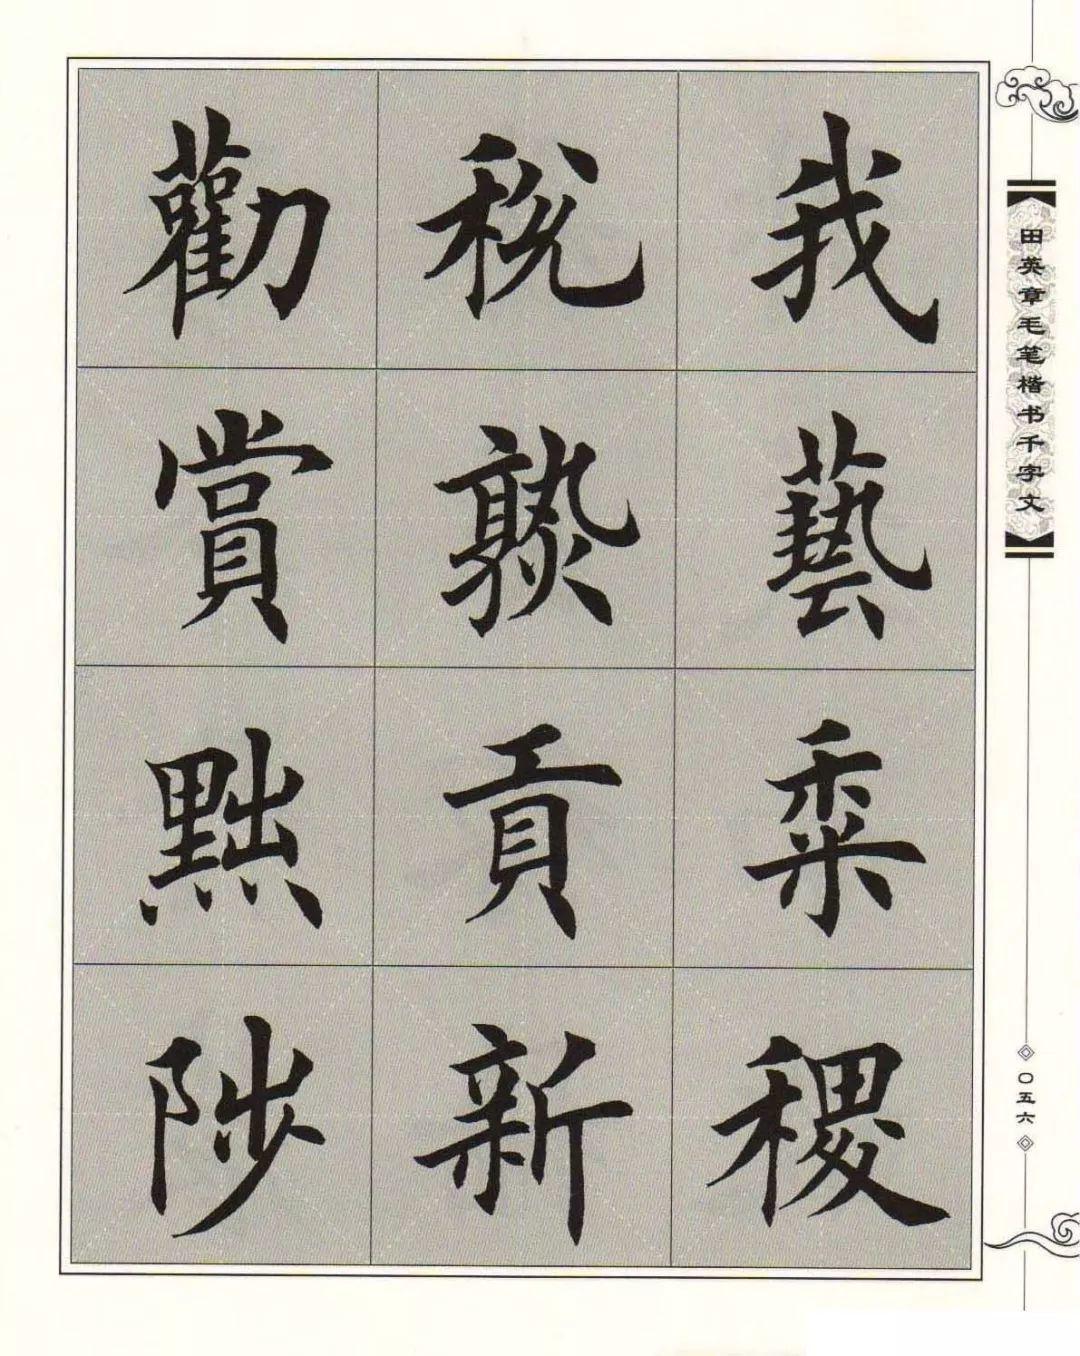 我藝黍稷
税熟貢新
勸賞黜陟
田英章毛笔楷书千字文
〇五六